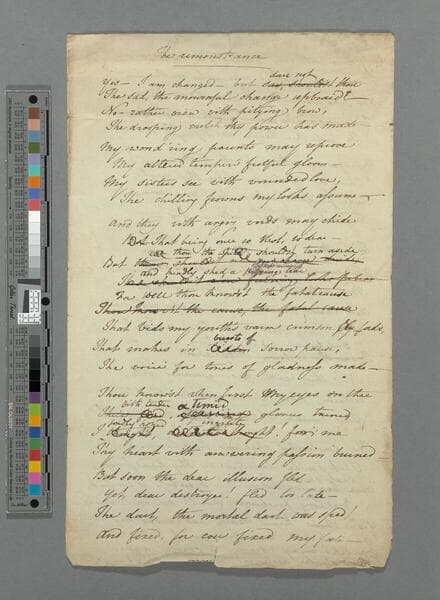 The remonstrance
dare not
Yes – I am changed – but say, shouldst thou
The sad, the mournful change upbraid?
No – rather view with pitying brow,
The drooping wretch thy power has made –
My wond'ring parents may reprove
My altered temper's fretful gloom –
My sisters see with wounded love,
The chilling frowns my looks assume –
And they with angry words may chide
That being once so blest, so dear
thou the should turn aside
But thou should
and kindly shed a pitying tear
The
For well thou knowst the fatal cause
Thou know'st the cause, the fatal cause
That bids my youth's warm crimson fly fade,
bursts of
That makes in sorrow pause,
The voice for tones of gladness made –
Thou know'st when first my eyes on thee
with tender a timid
glances turned
fondly
I thought for me
Thy heart with answering passion burned –
But soon the dear illusion fled
Yet, dear destroyer! fled too late –
The dart, the mortal dart was sped!
And fixed, for ever fixed my fate